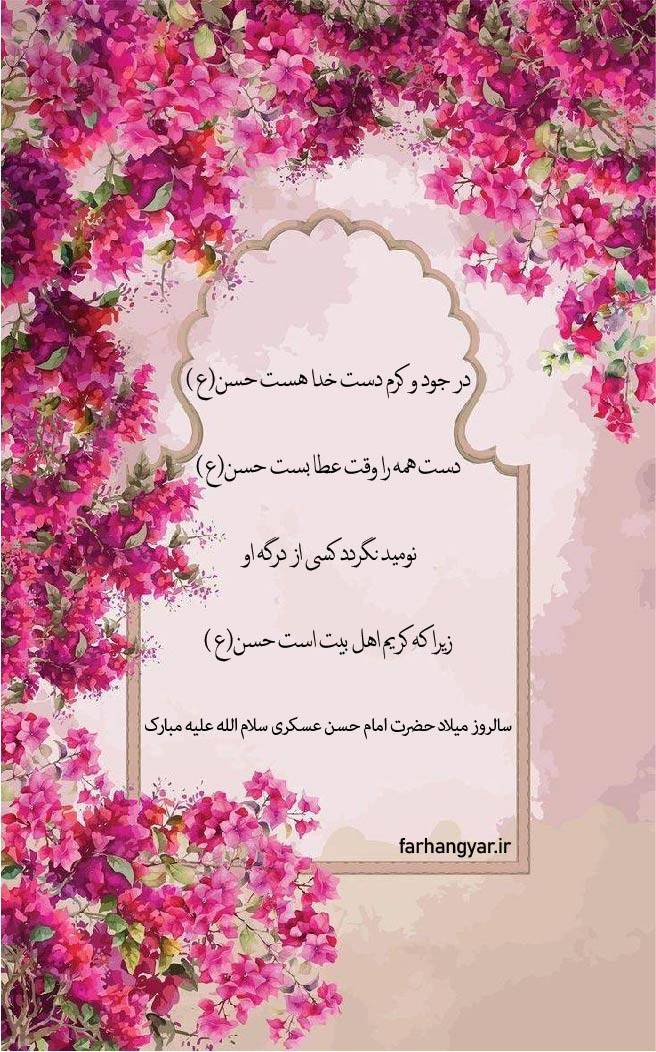 در جود و کرم دست خدا هست حسن(ع)
دست همه را وقت عطا بست حسن(ع)
نومید نگردد کسی از درگه او
زیرا که کریم اهل بیت است حسن(ع)
سالروز میلاد حضرت امام حسن عسکری سلام الله علیه مبارک
farhangyar.ir